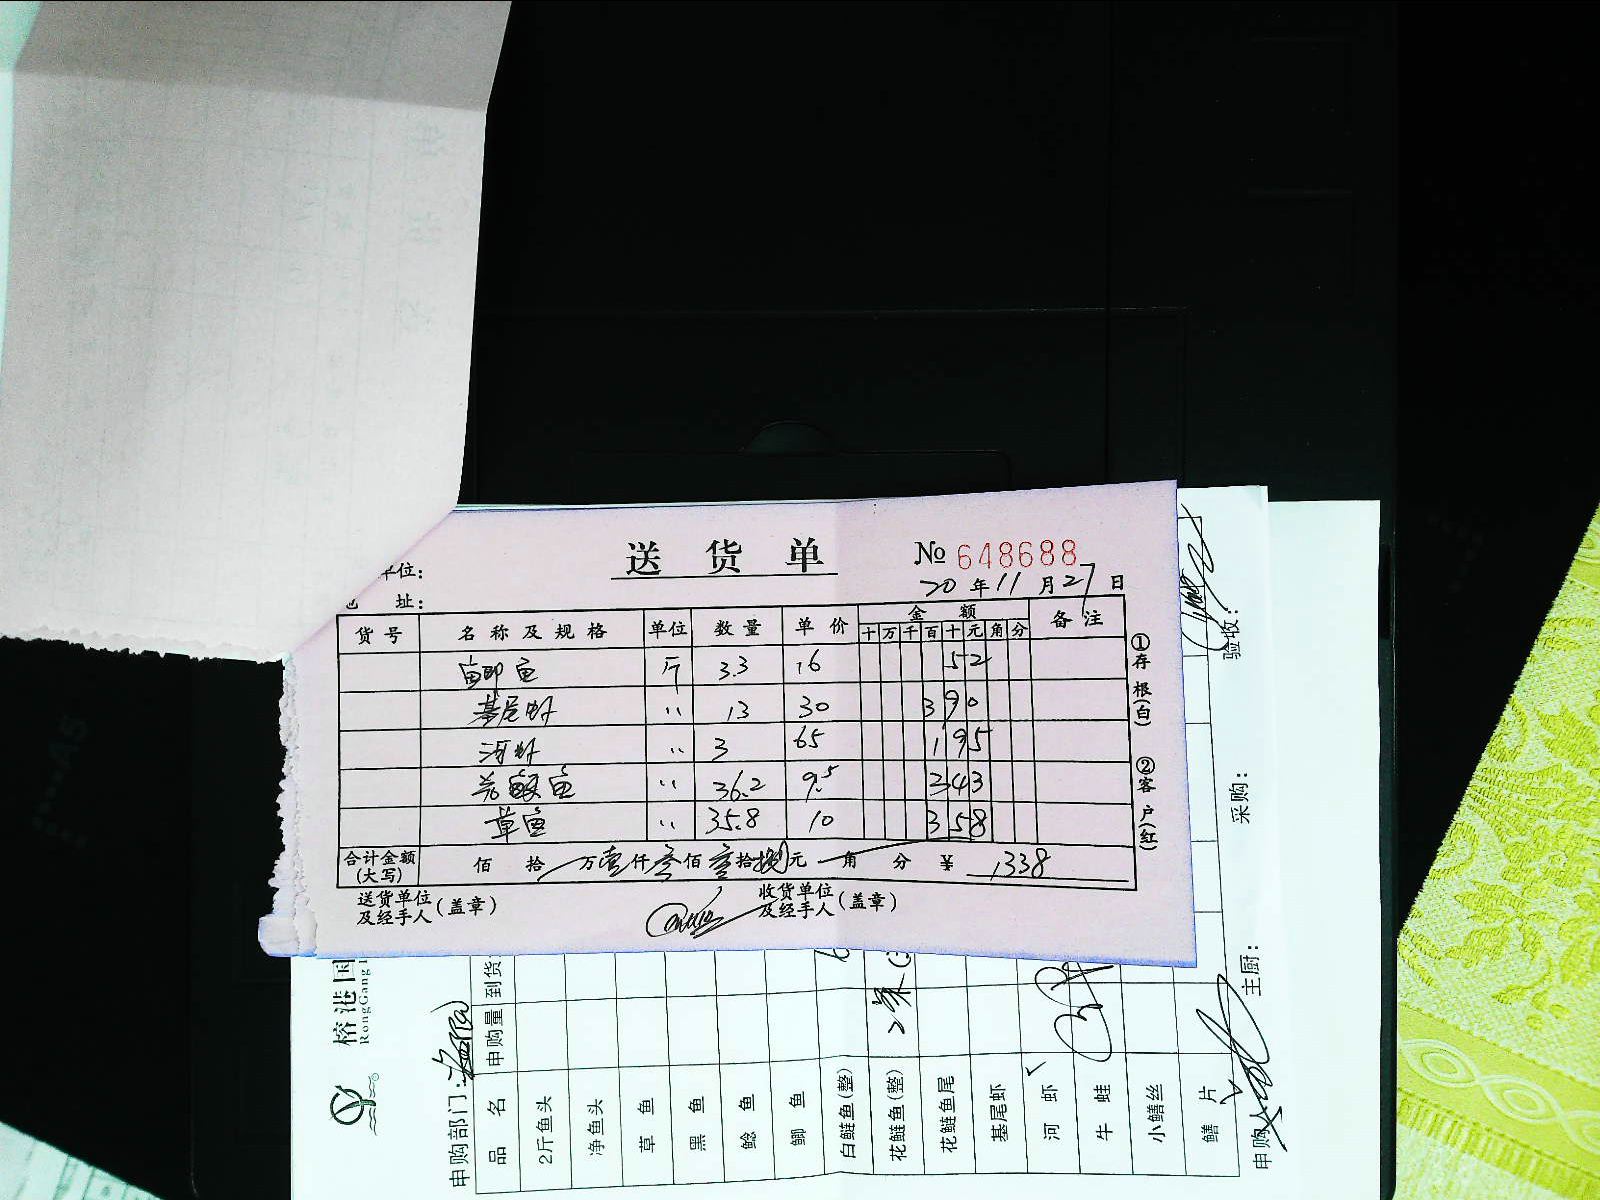 送货单 № 648688
单位：
址： 20年11月27日
货号 名称及规格 单位 数量 单价 金额 备注
十 万 千 百 十 元 角 分
鲫鱼 斤 3.3 16 52
基尾虾 〃 13 30 390
河虾 〃 3 65 195
花鲢鱼 〃 36.2 9.5 343
草鱼 〃 35.8 10 358
合计金额(大写) 佰 拾 万壹仟叁佰叁拾捌元 角 分 ¥ 1338
送货单位及经手人(盖章) 收货单位及经手人(盖章)
①存根(白) ②客户(红)
榕港国
RongGang
申购部门：
品名 申购量 到货
2斤鱼头
净鱼头
草鱼
黑鱼
鲶鱼
鲫鱼
白鲢鱼(整)
花鲢鱼(整)
花鲢鱼尾
基尾虾
河虾 ✓
牛蛙
小鳝丝
鳝片
申购人 主厨： 采购： 验收：